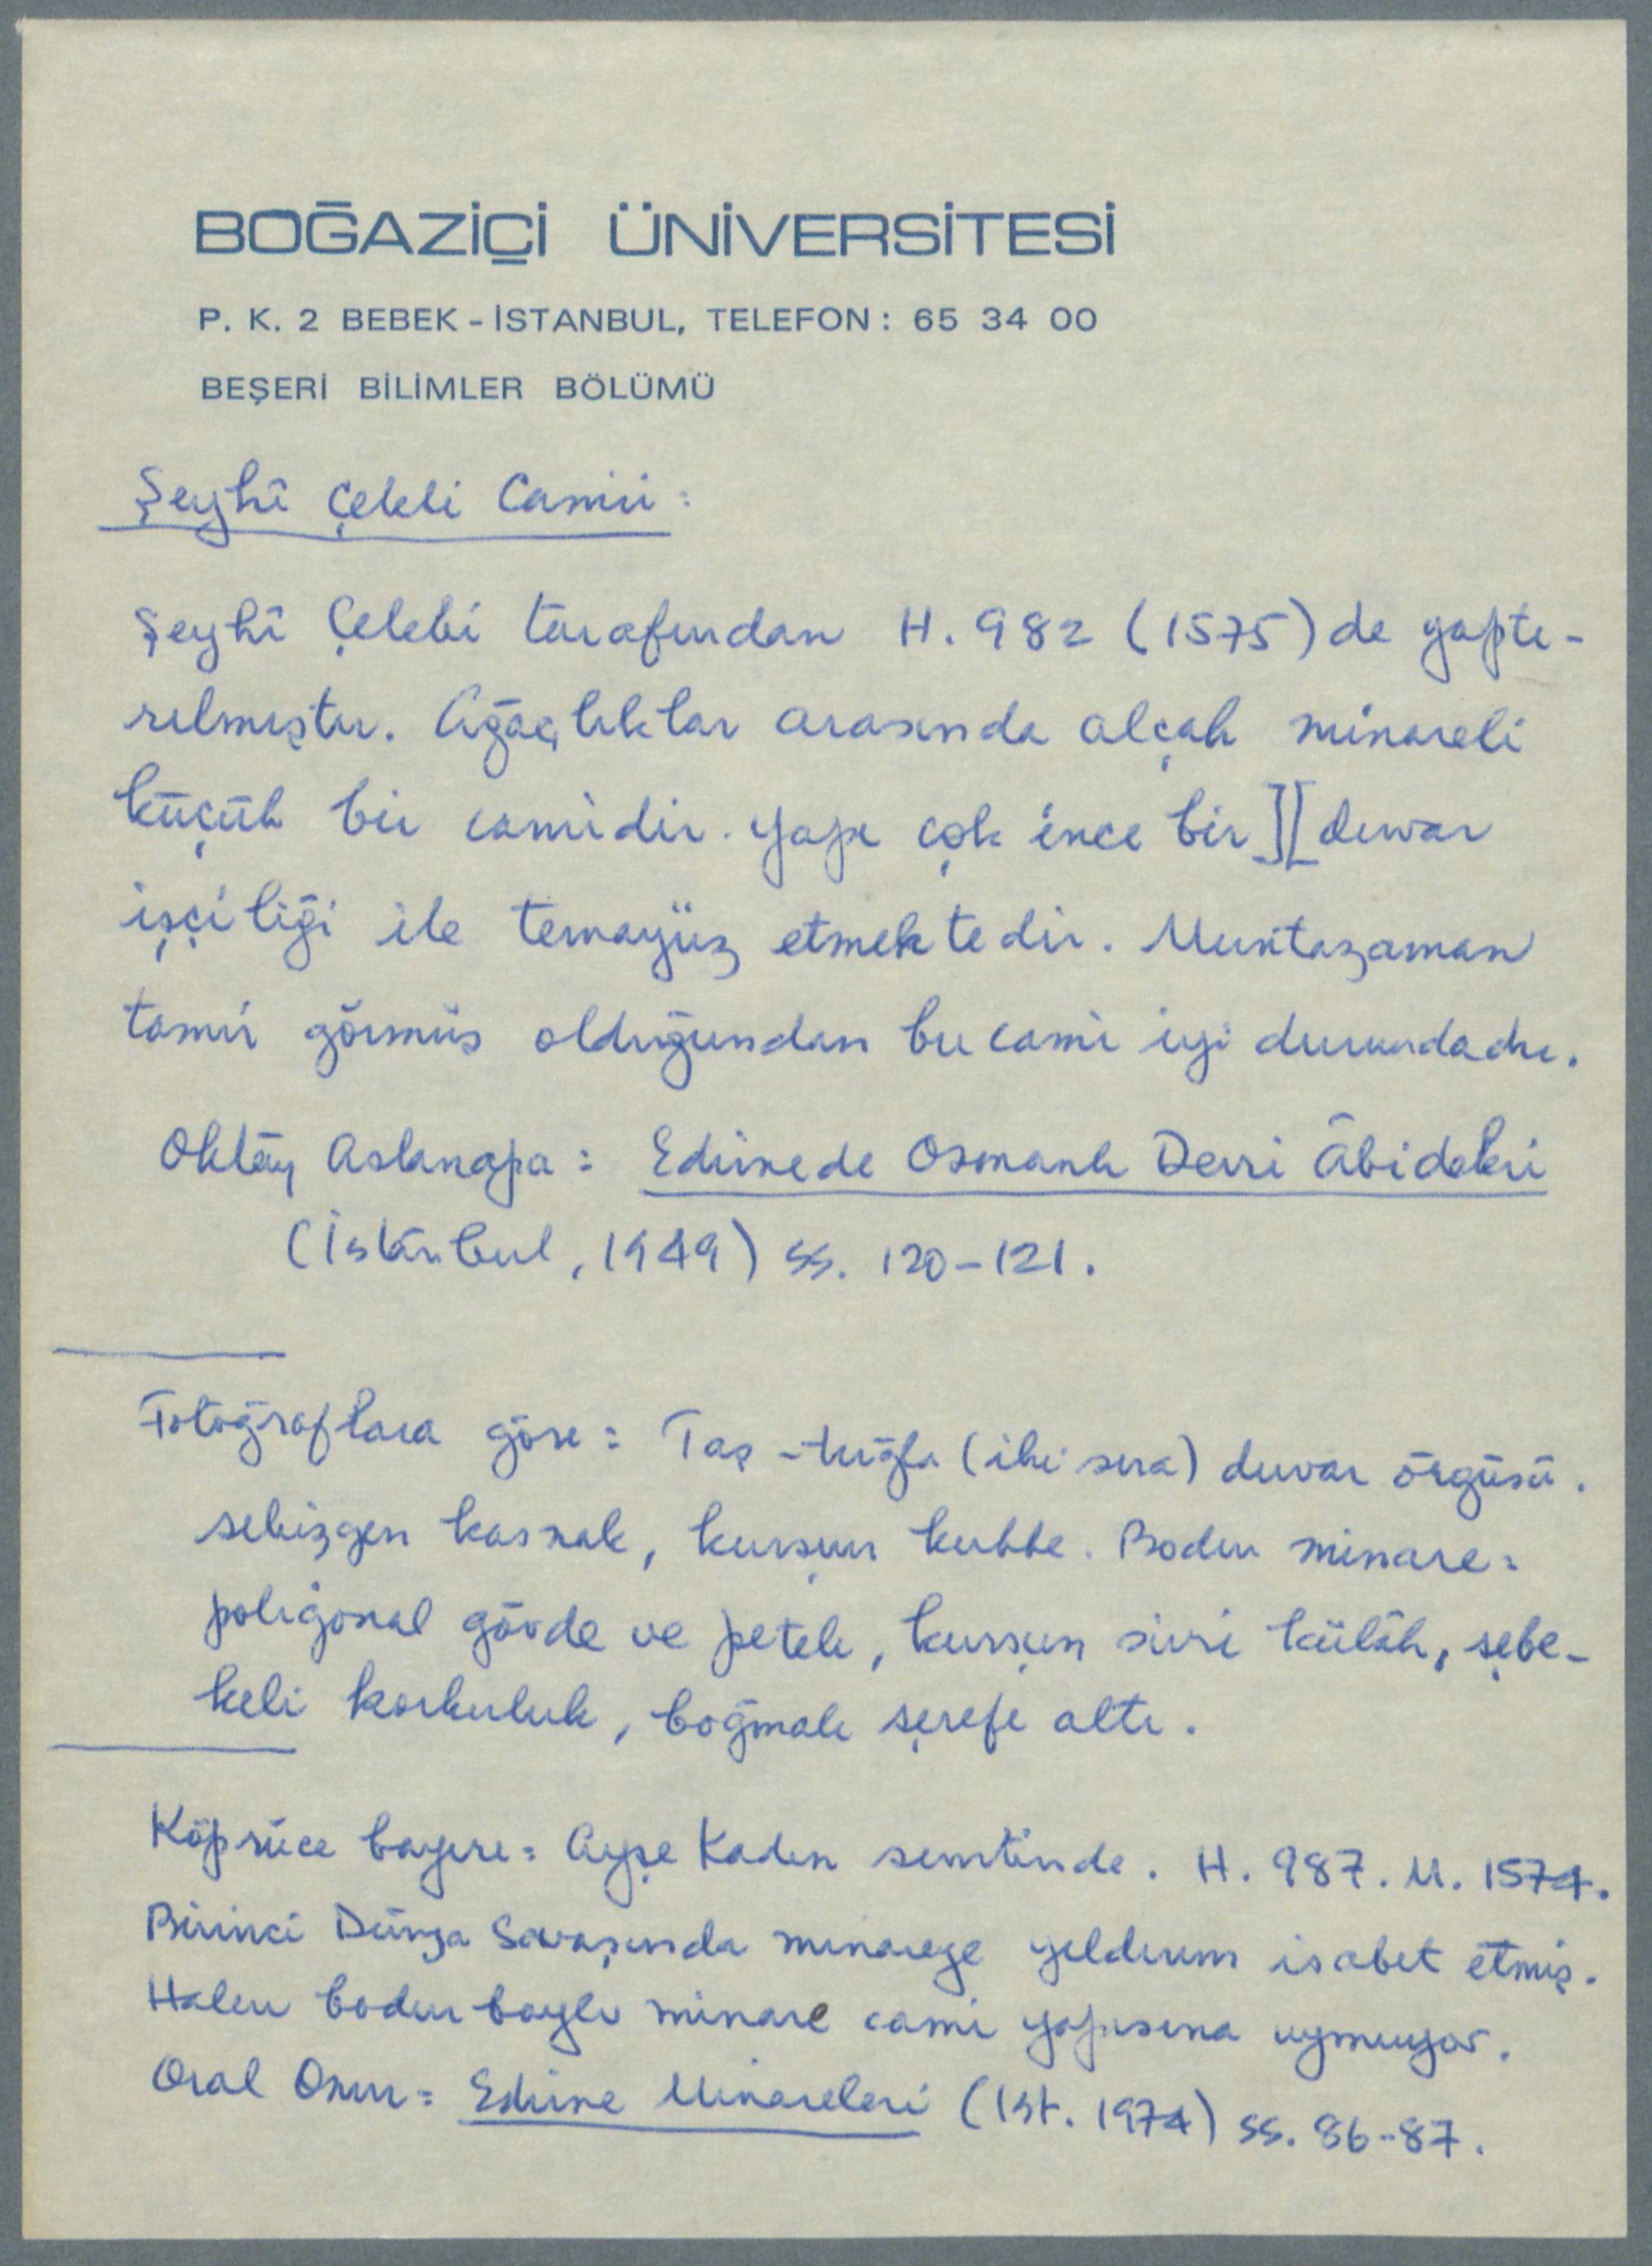 BOĞAZİÇİ ÜNİVERSİTESİ
P. K. 2 BEBEK - İSTANBUL, TELEFON : 65 34 00
BEŞERİ BİLİMLER BÖLÜMÜ
Şeyhî Çelebi Camii :
Şeyhî Çelebi tarafından H. 982 (1575) de yaptı-
rılmıştır. Ağaçlıklar arasında alçak minareli
küçük bir camidir. Yapı çok ince bir ][ duvar
işçiliği ile temayüz etmektedir. Muntazaman
tamir görmüş olduğundan bu cami iyi durumdadır.
Oktay Aslanapa : Edirnede Osmanlı Devri Âbideleri
(İstanbul, 1949) ss. 120-121.
Fotoğraflara göre : Taş - tuğla (iki sıra) duvar örgüsü.
sekizgen kasnak, kurşun kubbe. Bodur minare :
poligonal gövde ve petek, kurşun sivri külâh, şebe-
keli korkuluk, boğmalı şerefe altı.
Köprüce bayırı : Ayşe Kadın semtinde. H. 987. M. 1574.
Birinci Dünya Savaşında minareye yıldırım isabet etmiş.
Halen bodur boylu minare cami yapısına uymuyor.
Oral Onur : Edirne Minareleri (İst. 1974) ss. 86-87.